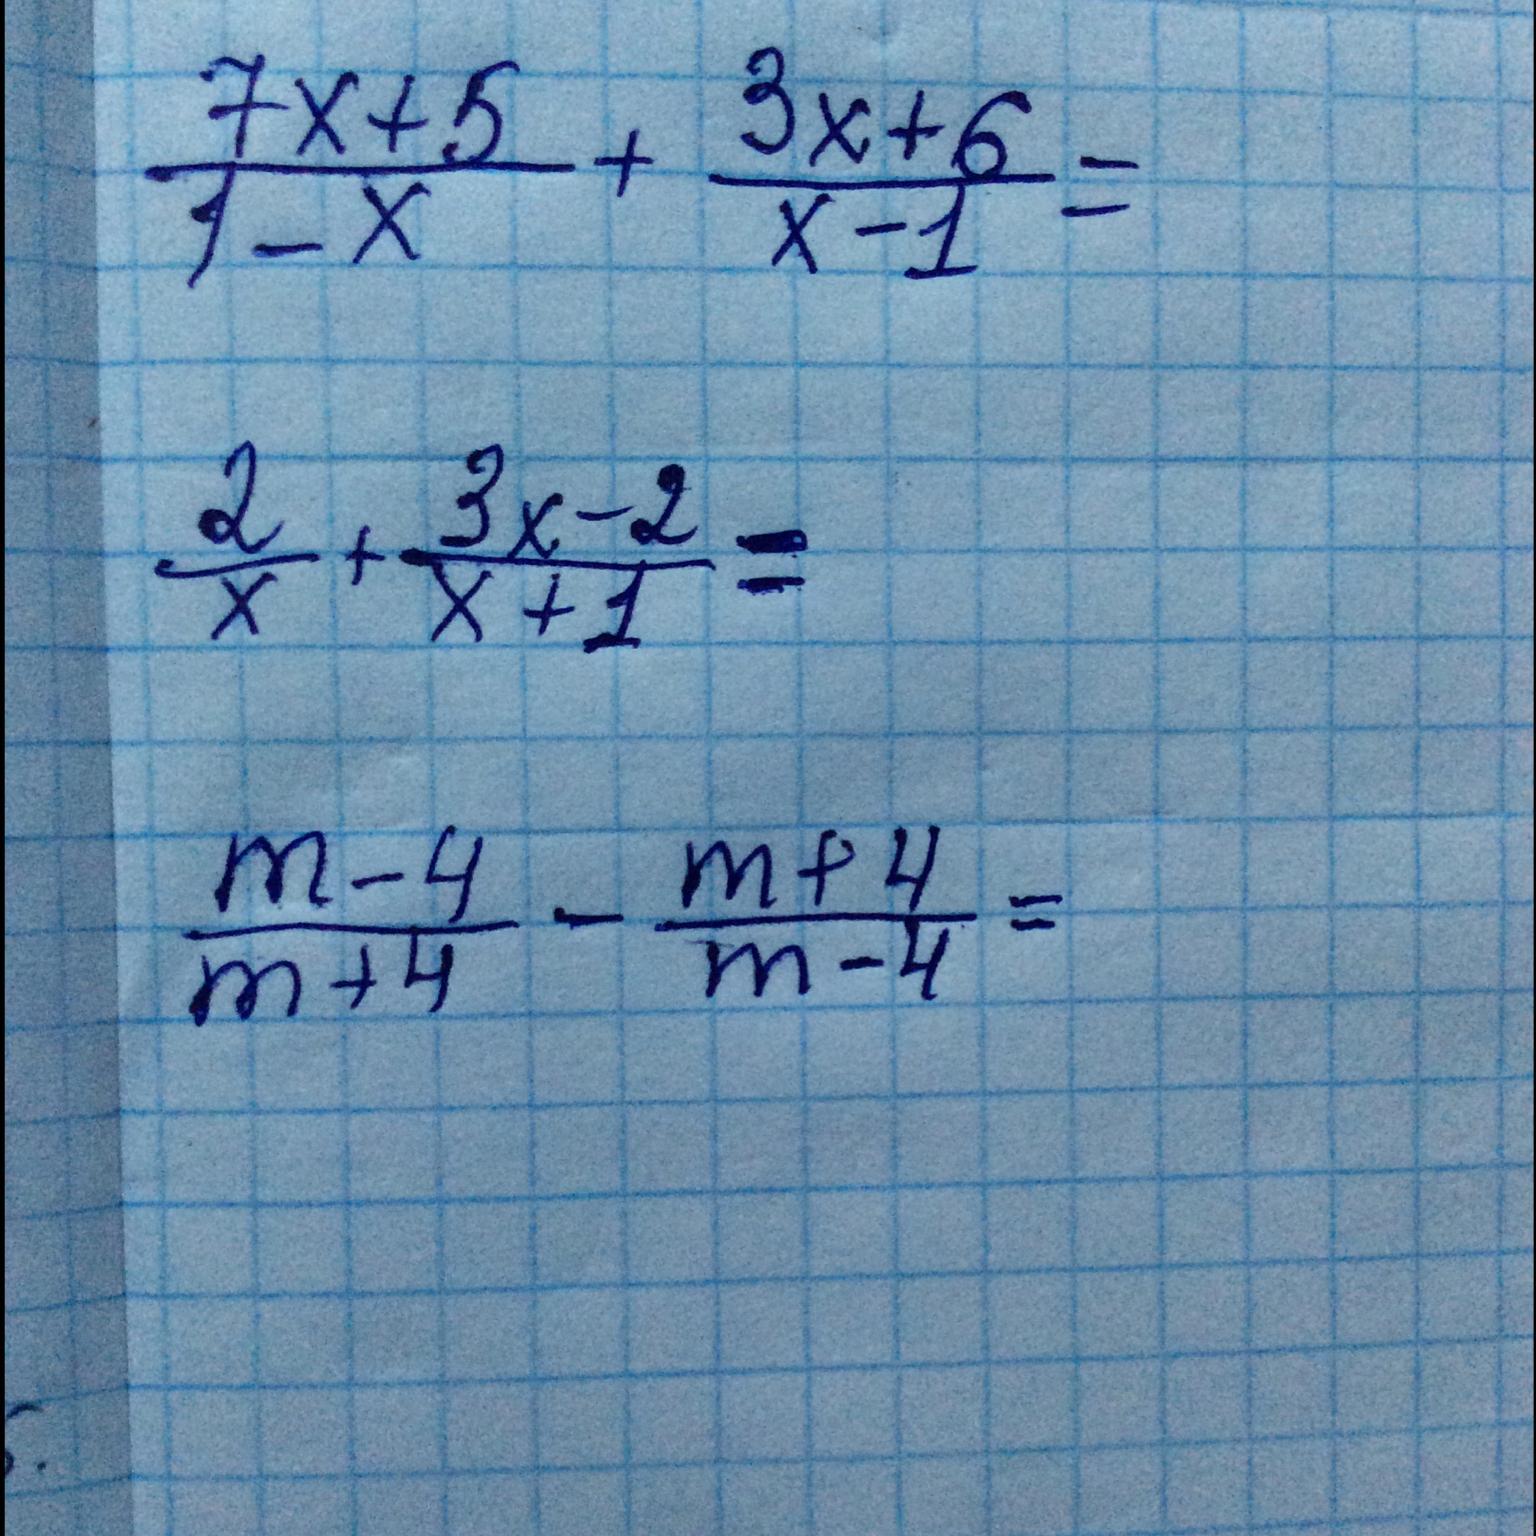 (7x+5)/(1-x) + (3x+6)/(x-1) =
2/x + (3x-2)/(x+1) =
(m-4)/(m+4) - (m+4)/(m-4) =